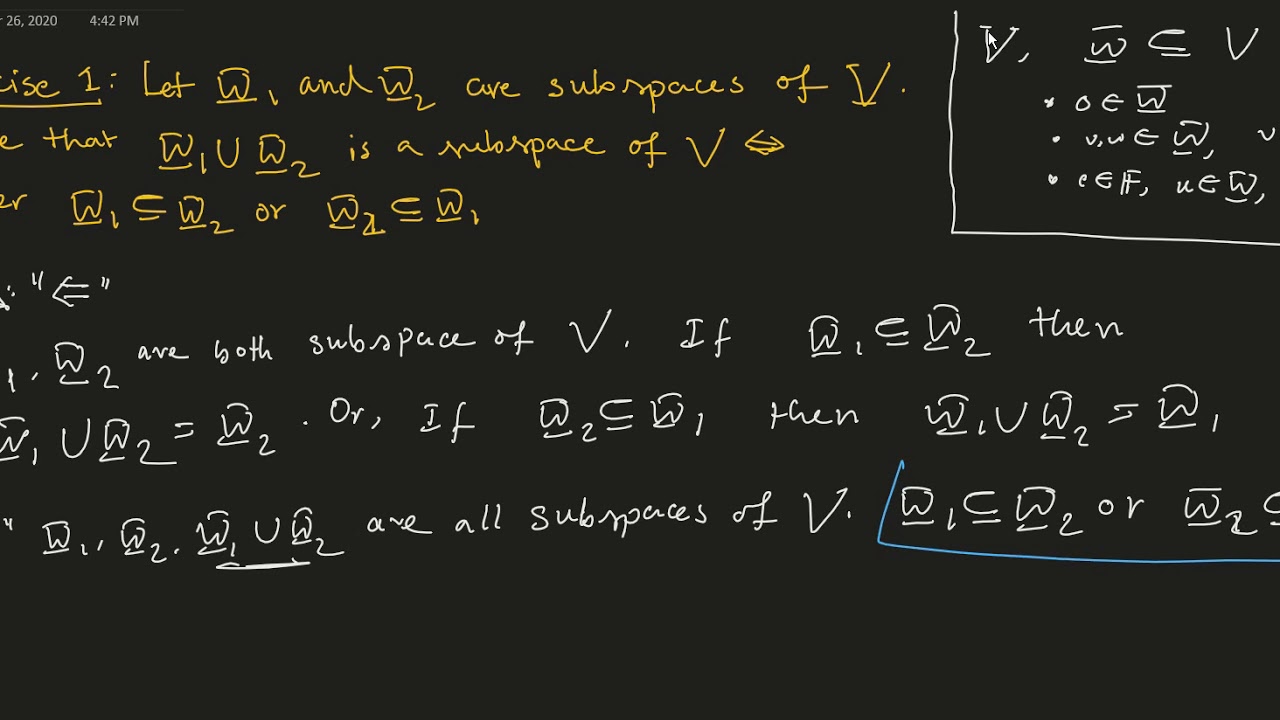 r 26, 2020 4:42 PM
cise 1: Let W₁ and W₂ are subspaces of V.
e that W₁ ∪ W₂ is a subspace of V ⇔
er W₁ ⊆ W₂ or W₂ ⊆ W₁
V, W ⊆ V
• 0 ∈ W
• v, w ∈ W, v
• c ∈ F, u ∈ W,
: "⇐"
₁, W₂ are both subspace of V. If W₁ ⊆ W₂ then
W₁ ∪ W₂ = W₂. Or, If W₂ ⊆ W₁ then W₁ ∪ W₂ = W₁
" W₁, W₂, W₁ ∪ W₂ are all subspaces of V. W₁ ⊆ W₂ or W₂ ⊆